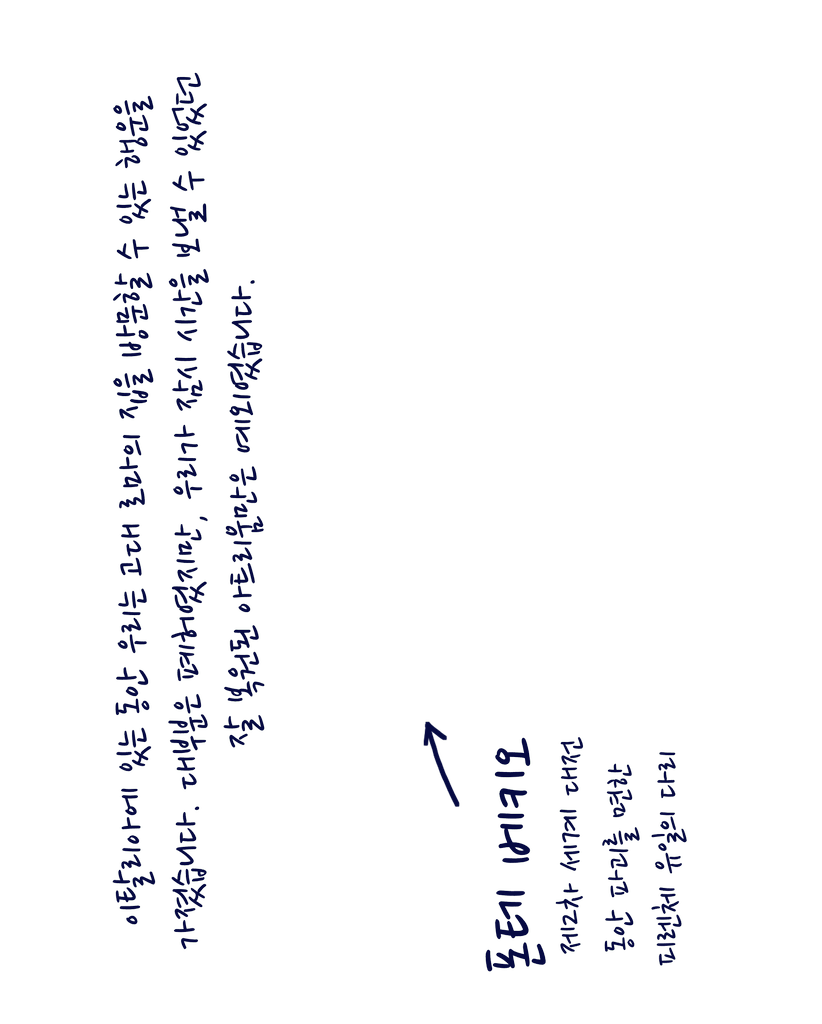 이탈리아에 있는 동안 우리는 고대 로마의 지역을 방문할 수 있는 행운을
가졌습니다. 대부분은 폐허였지만, 우리가 잠시 시간을 보낼 수 있었고
잘 복원된 아트리움만은 예외였습니다.
폰테 베키오
제2차 세계 대전
동안 파괴를 면한
피렌체 유일의 다리